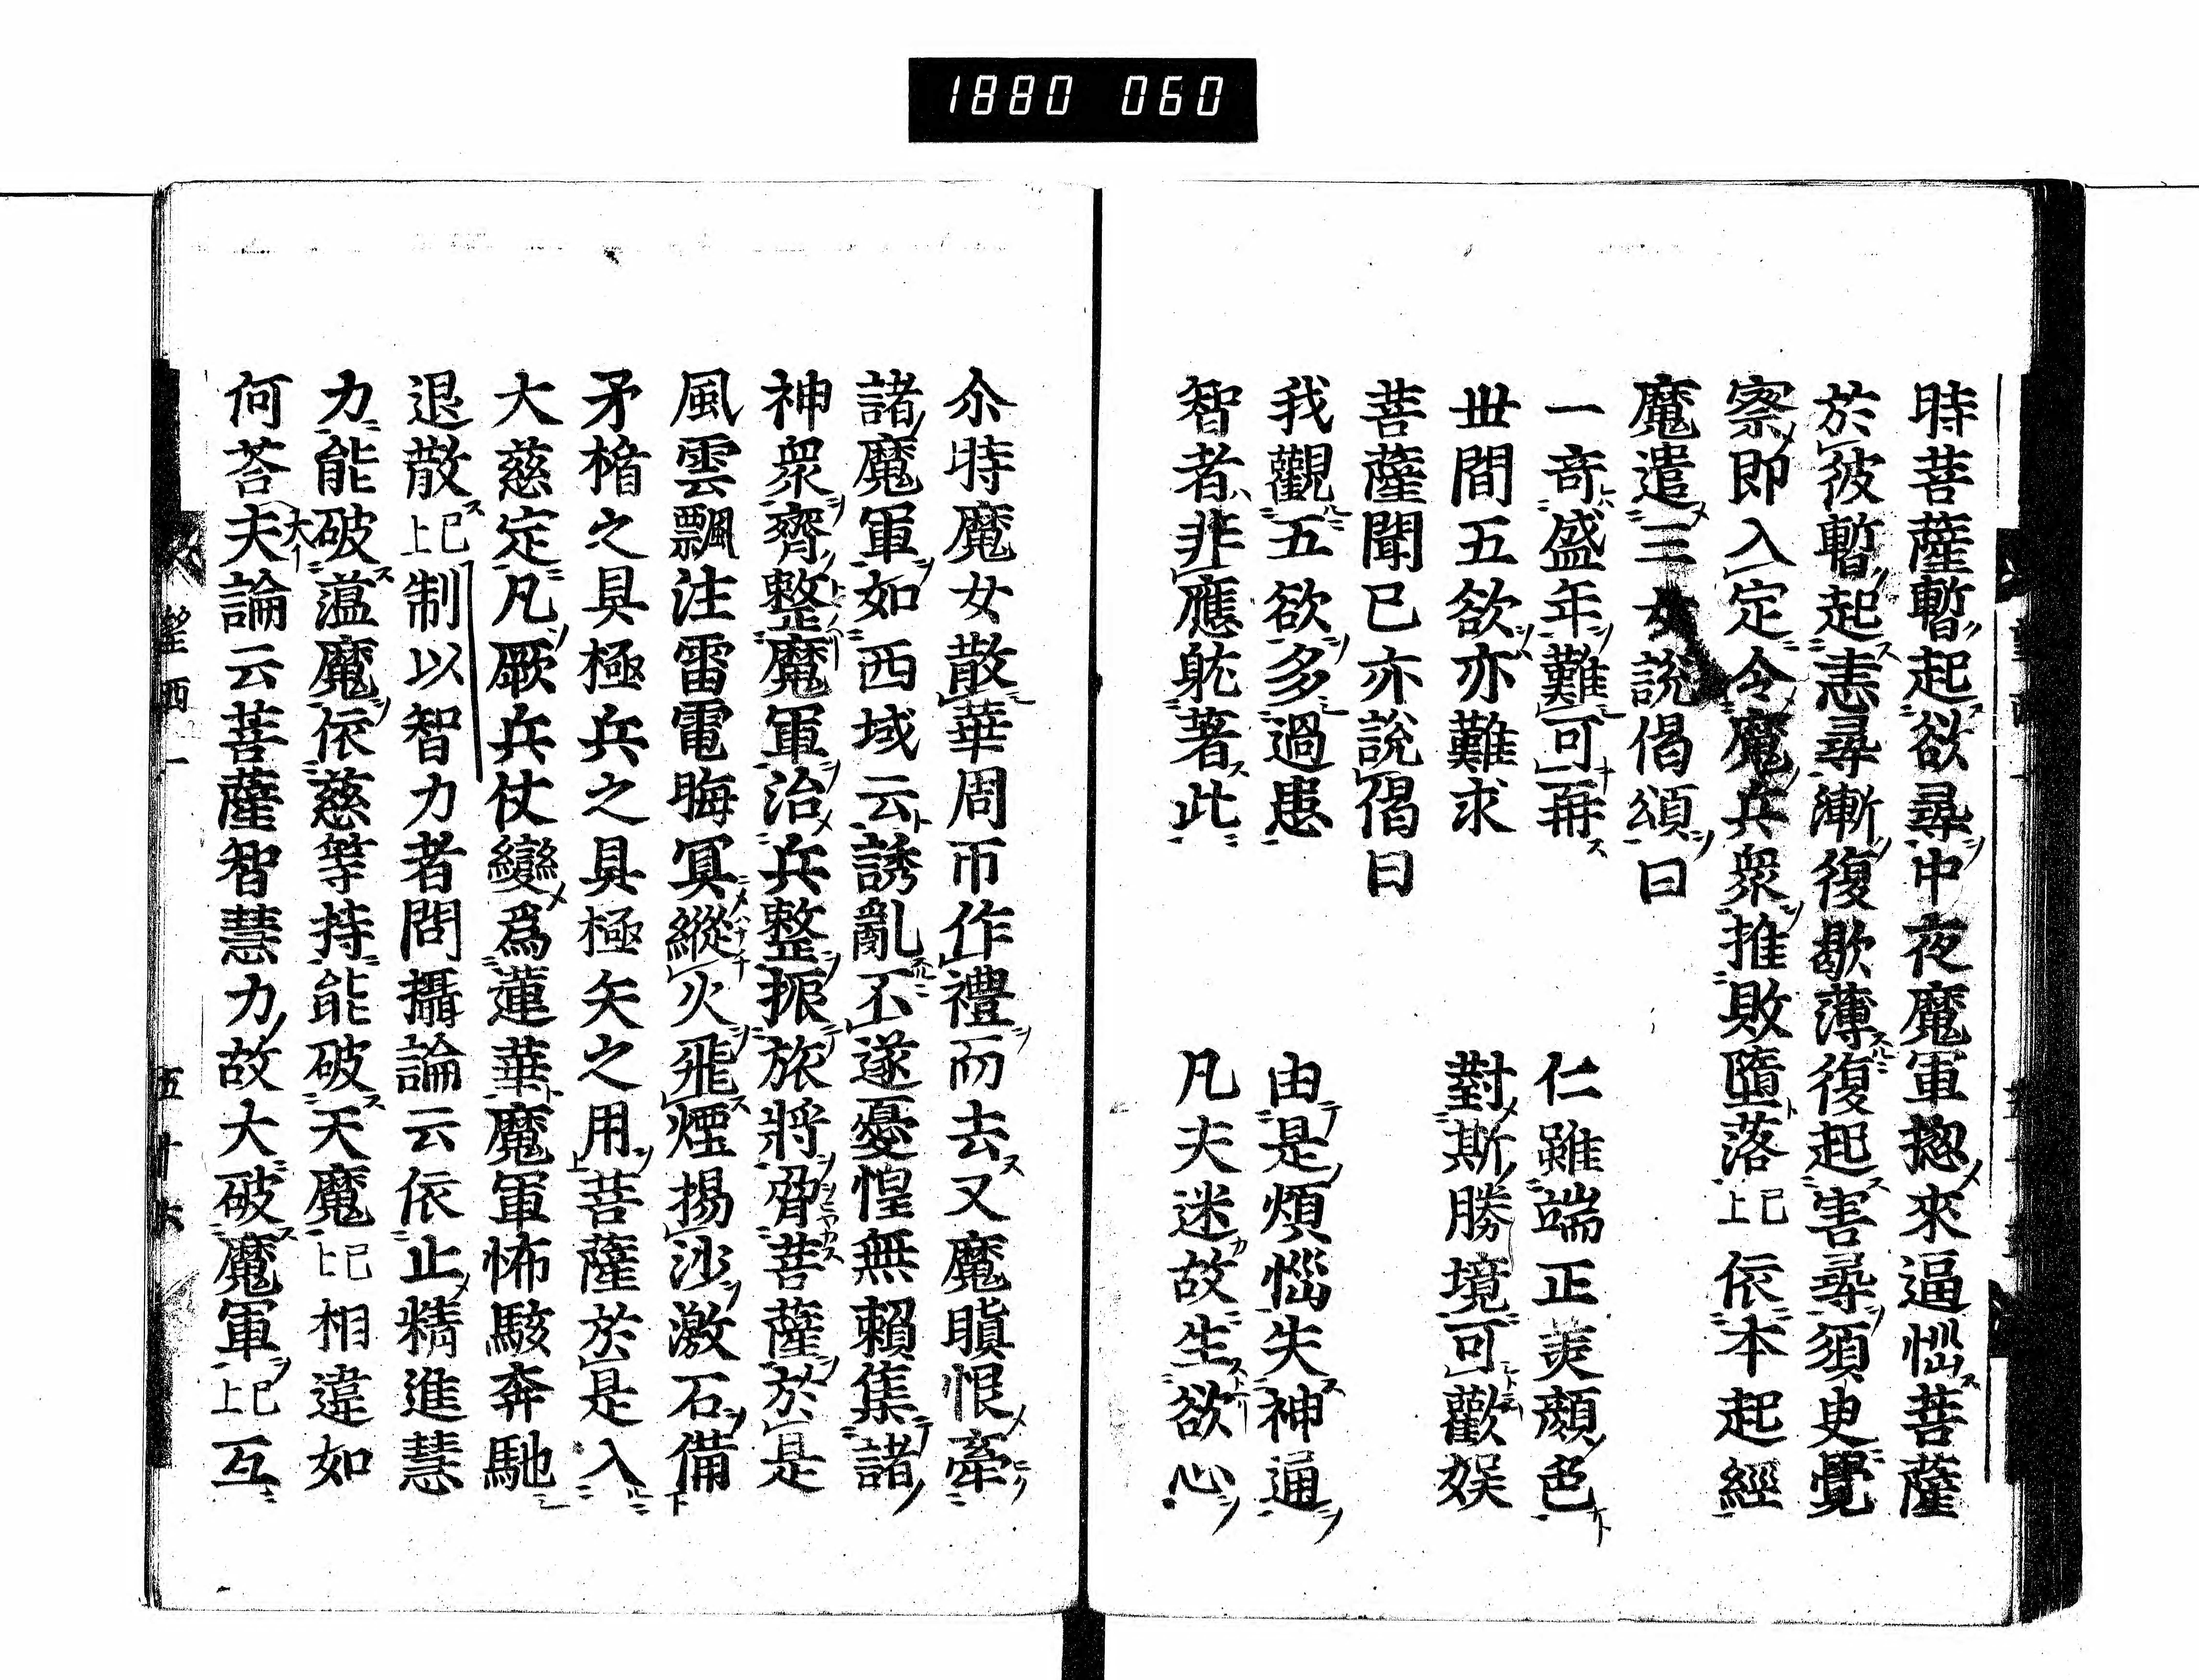 1880 060
時菩薩暫起欲尋中夜魔軍揔來逼惱菩薩
於彼暫起恚尋漸復歇薄復起害尋須臾覺
察即入定令魔兵衆推敗墮落已上依本起經
魔遣三女說偈頌曰
一奇盛年難可再 仁雖端正美顏色
世間五欲亦難求 對斯勝境可歡娱
菩薩聞已亦說偈曰
我觀五欲多過患 由是煩惱失神通
智者非應躭著此 凡夫迷故生欲心
尒時魔女散華周帀作禮而去又魔瞋恨牽
諸魔軍如西域云誘亂不遂憂惶無賴集諸
神衆齊整魔軍治兵整振旅將脅菩薩於是
風雲飄注雷電晦冥縱火飛煙揚沙激石備
矛楯之具極兵之具極矢之用菩薩於是入
大慈定凡厥兵仗變爲蓮華魔軍怖駭奔馳
退散已上制以智力者問攝論云依止精進慧
力能破薀魔依慈等持能破天魔已上相違如
何荅夫論云菩薩智慧力故大破魔軍已上互
大
望西一 五十六